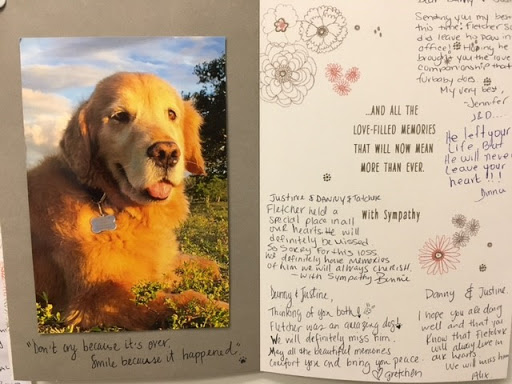 "Don't cry because it's over,
Smile because it happened"
Sending you my best
this time. Fletcher
did leave his paw in
office! Hoping he
brought you the love
companionship that
furbaby does.
My very best,
-Jennifer
...AND ALL THE
LOVE-FILLED MEMORIES
THAT WILL NOW MEAN
MORE THAN EVER.
With Sympathy
He left your
Life, But
He will never
Leave your
heart!!!
Justine & Danny &
Fletcher held a
special place in all
our hearts. He will
definitely be missed
So Sorry for this loss
We definitely have memories
of him we will always cherish.
-With Sympathy
Danny & Justine,
Thinking of you both!
Fletcher was an amazing dog!
We will definitely miss him.
May all the beautiful memories
comfort you and bring you peace.
Gretchen
Danny & Justine.
I hope you are doing
well and that you
Know that Fletcher
will always live in
our hearts
We will miss him
Alix